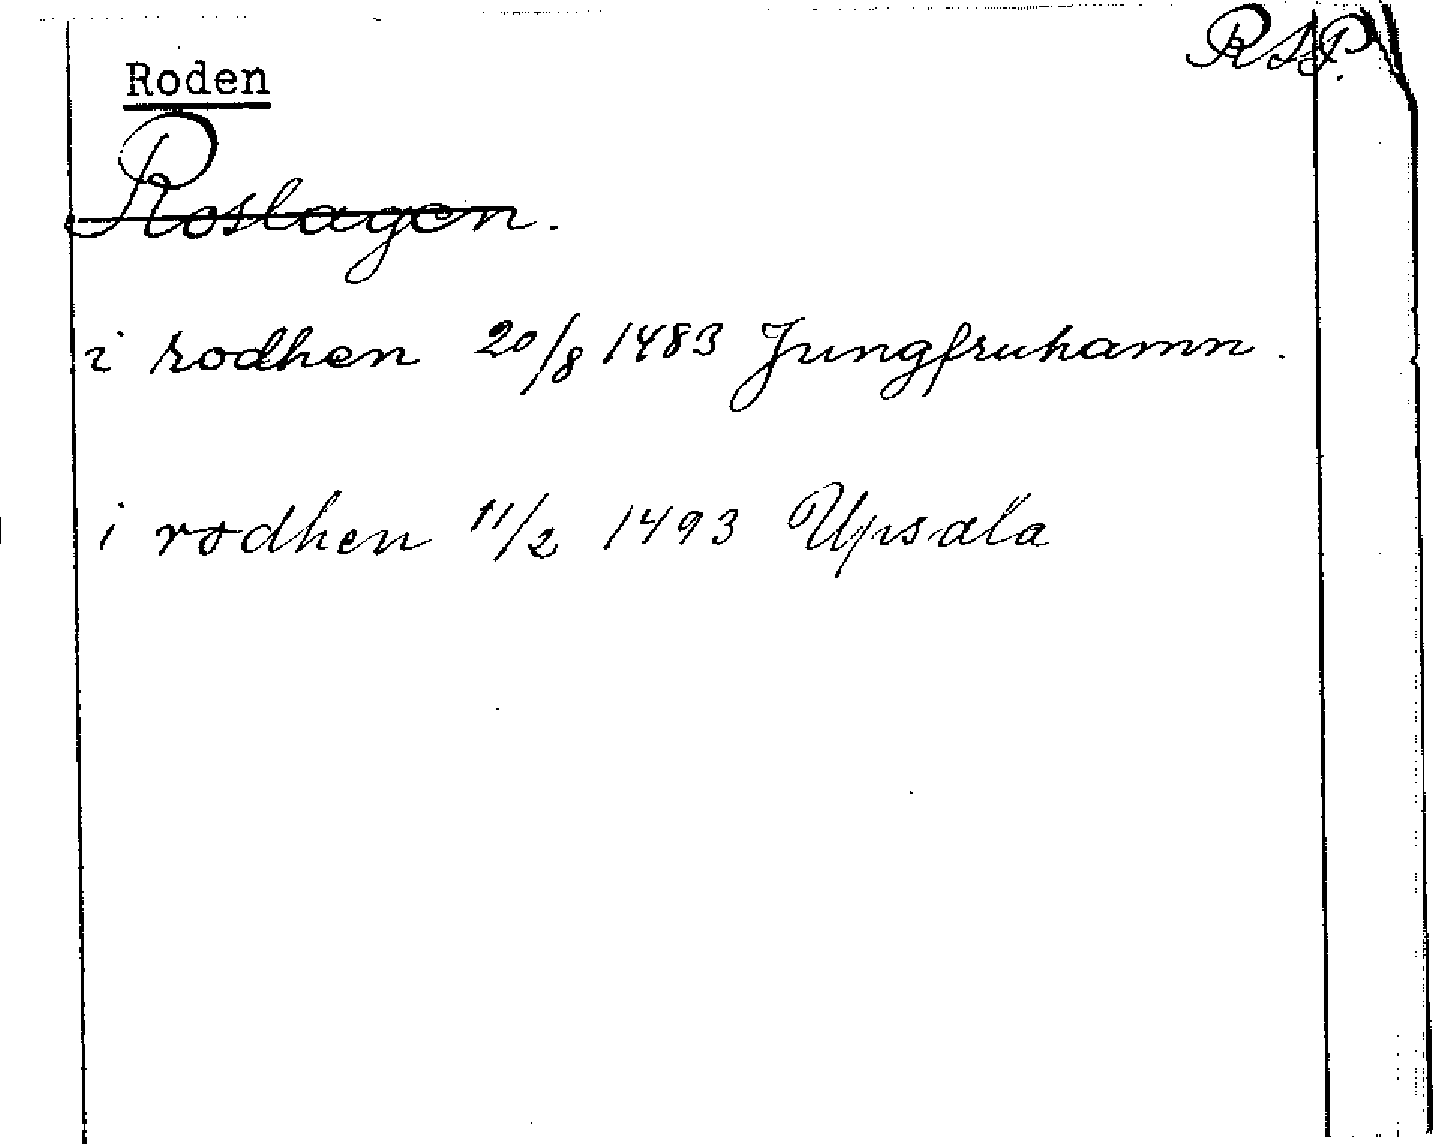 RSP.
Roden
Roslagen.
i rodhen 20/8 1483 Jungfruhamn.
i rodhen 11/2 1493 Upsala